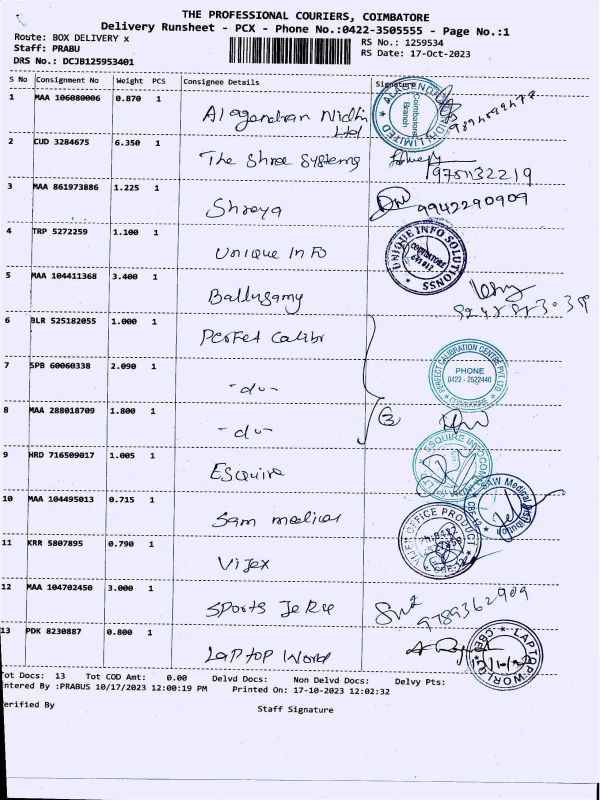 THE PROFESSIONAL COURIERS, COIMBATORE
Delivery Runsheet - PCX - Phone No.:0422-3505555 - Page No.:1
Route: BOX DELIVERY x
RS No.: 1259534
Staff: PRABU
RS Date: 17-Oct-2023
DRS No.: DCJB125953401
S No Consignment No Weight PCS Consignee Details Signature
1 MAA 106080006 0.870 1 Alagendran Nidhi Ltd
2 CUD 3284675 6.350 1 The Shree Systems
9751132219
3 MAA 861973886 1.225 1 Shreya 9942290909
4 TRP 5272259 1.100 1 Unique Info UNIQUE INFO SOLUTIONSS
5 MAA 104411368 3.400 1 Ballusamy
6 BLR 525182055 1.000 1 Perfet Calibr
PERFECT CALIBRATION CENTRE PVT LTD
PHONE
0422 - 2522440
COIMBATORE
7 SPB 60060338 2.090 1 -do-
8 MAA 288018709 1.800 1 -do- 3
9 HRD 716509017 1.005 1 Esquire
10 MAA 104495013 0.715 1 Sam medicos
11 KRR 5807895 0.790 1 Vijex
12 MAA 104702450 3.000 1 Sports Jerse 9789362909
13 PDK 8230887 0.800 1 Laptop World LAPTOP WORLD CBE
Tot Docs: 13 Tot COD Amt: 0.00 Delvd Docs: Non Delvd Docs: Delvy Pts:
Entered By :PRABUS 10/17/2023 12:00:19 PM Printed On: 17-10-2023 12:02:32
Verified By Staff Signature